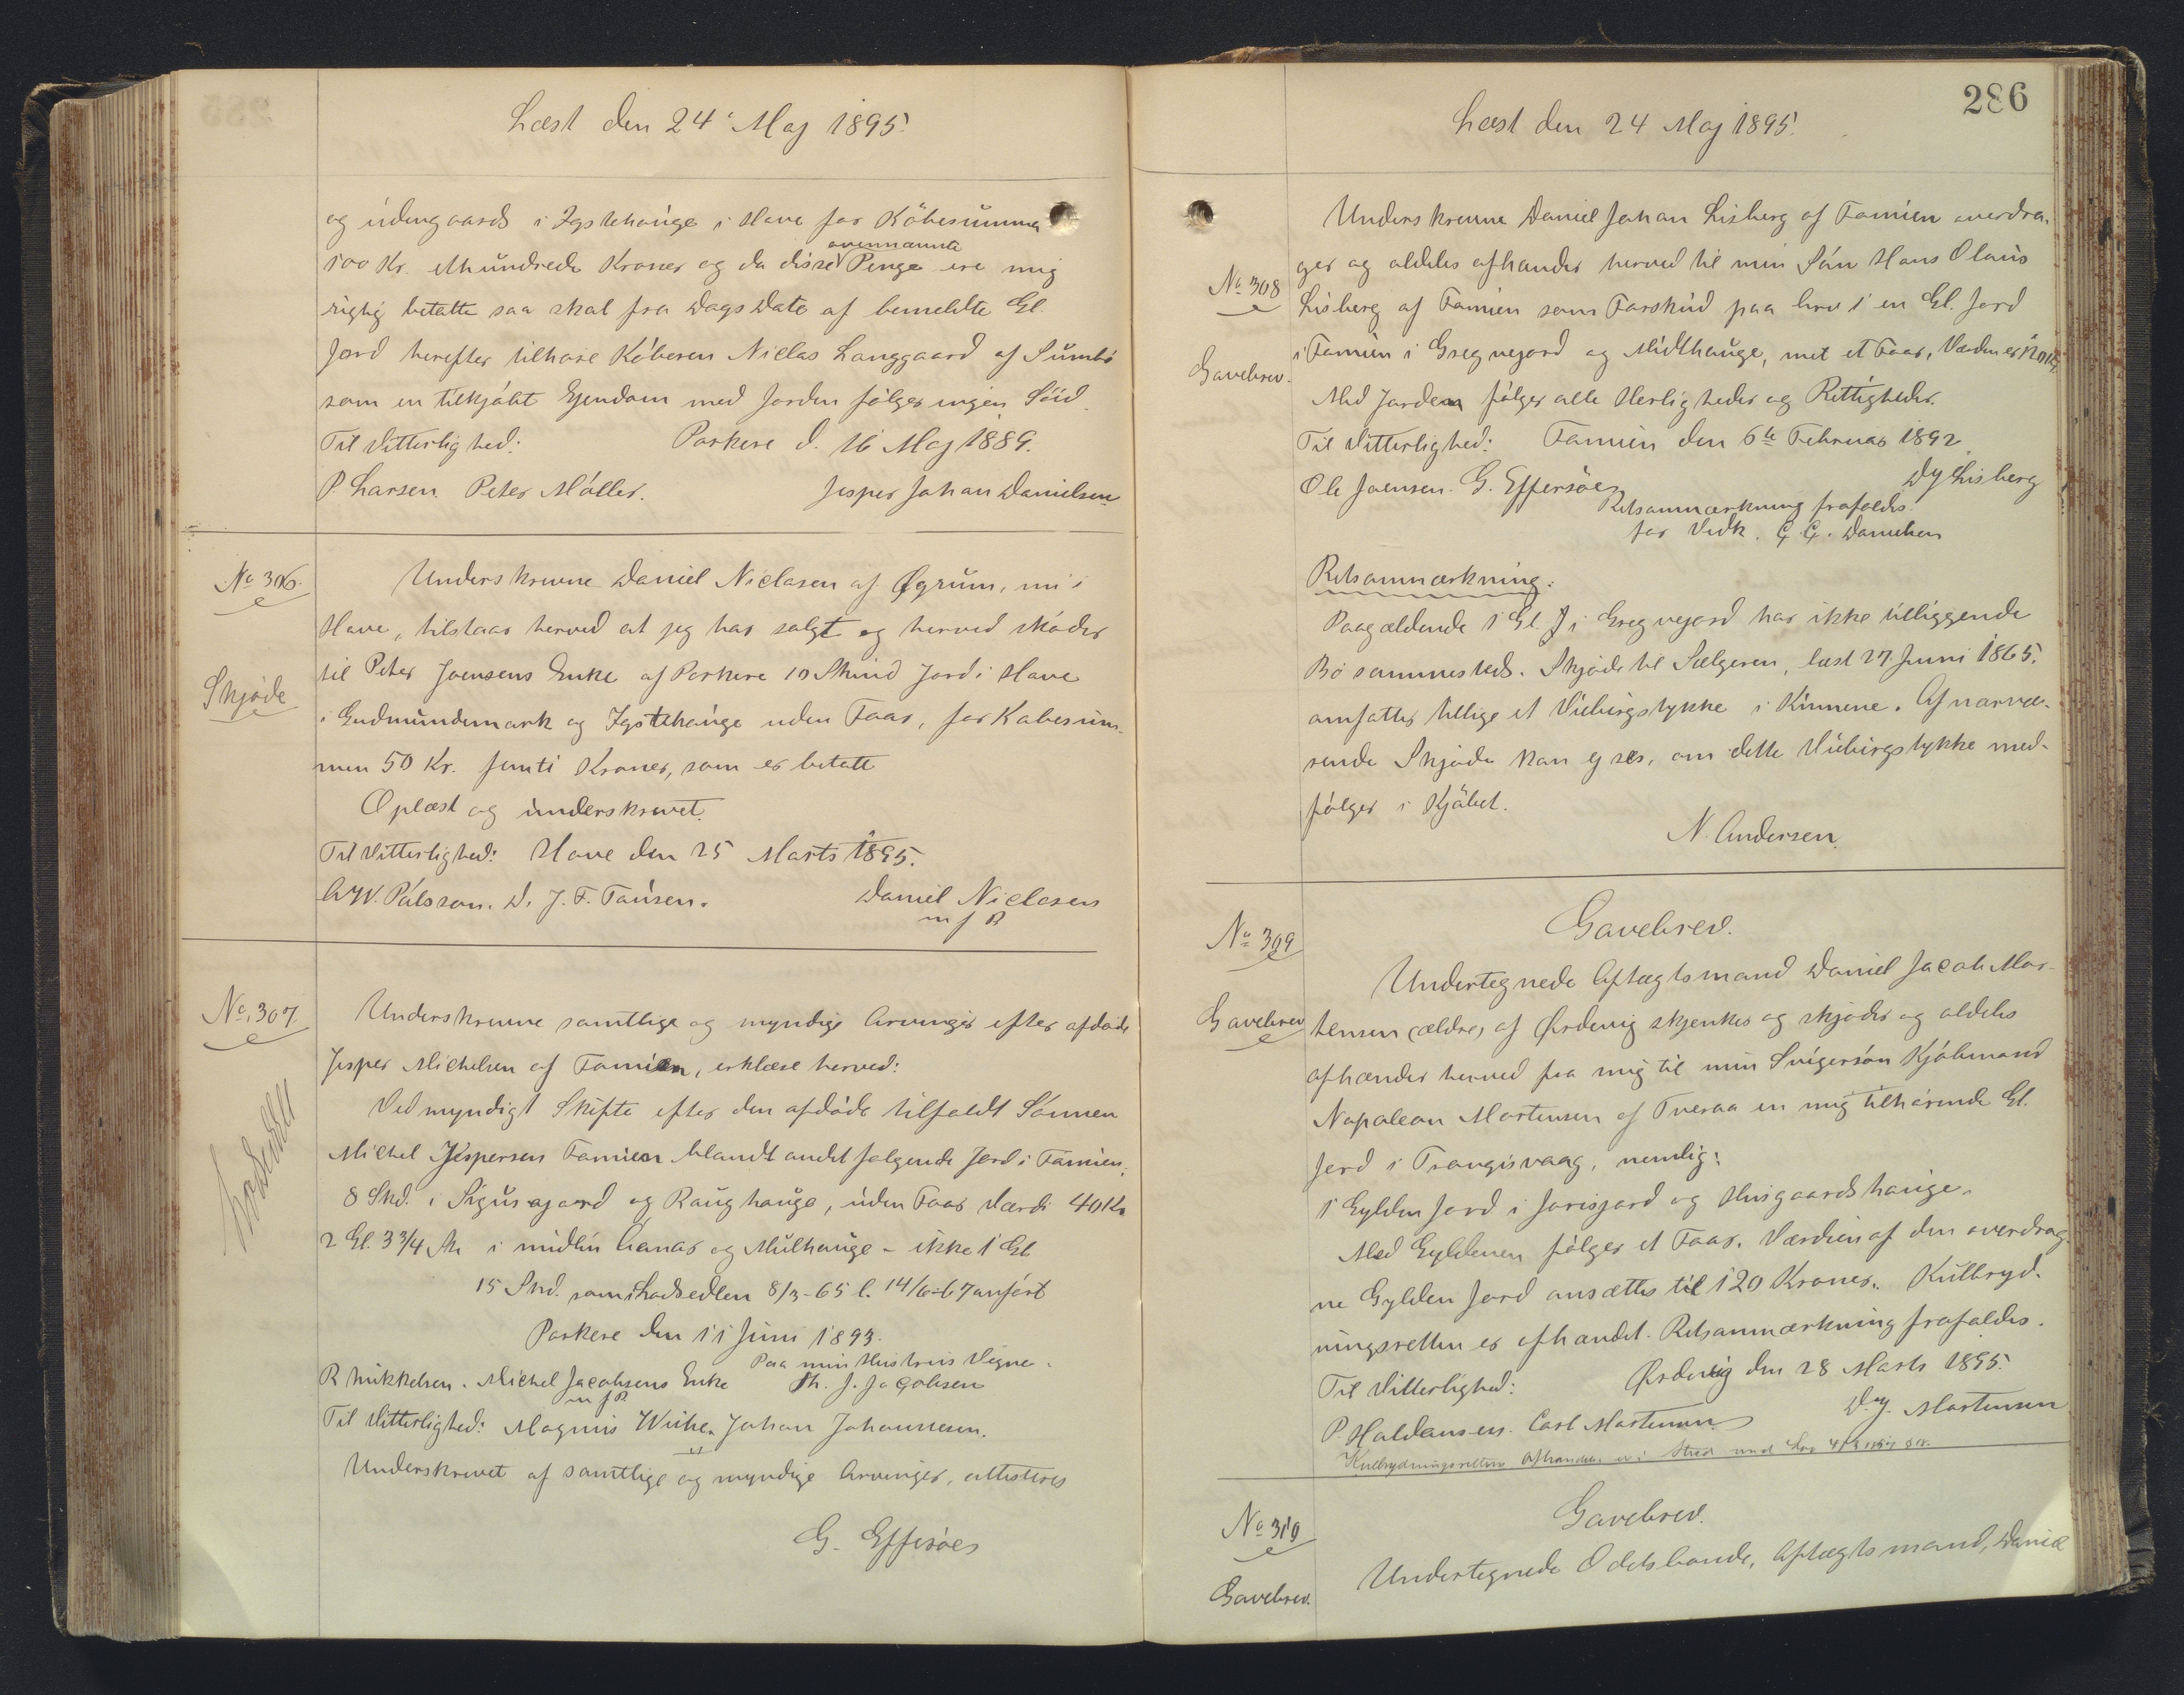 Læst den 24' Maj 1895.
og udengaards i Igstehauge i Have for Köbesumma
100 Kr. ethundrede Kroner og da disse ovennævnte Penge ere mig
rigtig betalte saa skal fra Dags Dato af bemeldte Gl.
Jord herefter tilhøre Köberen Niclas Langgaard af Sumbö
som en tilkjøbt Ejendom med Jorden følger ingen Söid.
Til Vitterlighed: Porkere d. 16 Maj 1889.
P Larsen. Peter Møller. Jesper Johan Danielsen
No 306.
Skjøde
Underskrevne Daniel Niclasen af Øgrum, nu i
Hove, tilstaar herved at jeg har solgt og herved skøder
til Peter Joensens Enke af Porkere 10 Skind Jord i Hove
i Gudmundemark og Igstehauge uden Faar, for Købesum-
men 50 Kr. femti Kroner, som er betalt
Oplæst og underskrevet.
Til Vitterlighed: Hove den 25 Marts 1895.
A W. Pálsson. D. J. F. Tausen. Daniel Niclasen
m f P
No. 307
Lodseddel
Underskrevne samtlige og myndige Arvinger efter afdøde
Jesper Michelsen af Famien, erklære herved:
Ved myndigt Skifte efter den afdøde tilfaldt Sønnen
Michel Jespersen Famien blandt andet følgende Jord i Famien:
8 Skd. i Sigusajord og Raughauge, uden Faar Værdi 40 Kr
2 Gl. 3 3/4 Sk i midlun Ganar og Mulhauge - ikke 1 Gl
15 Skd. som i Lodsedlen 8/3-65 l. 14/6-67 anført
Porkere den 11 Juni 1893.
Paa min Hustrus Vegne.
R Mikkelsen. Michel Jacobsens Enke Th. J. Jacobsen
m f P.
Til Vitterlighed: Magnus Wuhe. Johan Johannesen.
Underskrevet af samtlige og myndige Arvinger, attesteres
G. Effersöe
286
Læst den 24 Maj 1895.
No 308
Gavebrev.
Underskrevne Daniel Johan Lisberg af Famien overdra-
ger og aldeles afhænder herved til min Søn Hans Olaus
Lisberg af Famien som Forskud paa Arv 1 en Gl. Jord
i Famien i Gregvejord og Midlhauge, met et Faar, Værdien er
Med Jorden følger alle Herligheder og Rettigheder.
Til Vitterlighed: Famien den 6te Februar 1892
Ole Joensen. G. Effersöe DJ Lisberg
Retsanmærkning frafaldes.
for Vedk. C. C. Danielsen
Retsanmærkning:
Paagældende 1 Gl. J i Gregvejord har ikke tilliggende
Bø sammesteds. Skjøde til Sælgeren, læst 27 Juni 1865,
omfatter tillige et Udbergstykke i Kinnene. Af nærvæ-
rende Skjøde kan ej sees, om dette Udbirgstykke med-
følger i Kjøbet.
N. Andersen.
No 309
Gavebrev
Gavebrev.
Undertegnede Aftægtsmand Daniel Jacob Mor-
tensen (ældre) af Ørdevig skjenker og skjøder og aldeles
afhænder herved fra mig til min Svigersøn Kjøbmand
Napoleon Mortensen af Tveraa en mig tilhørende Gl.
Jord i Trangisvaag, nemlig:
1 Gylden Jord i Jorisjord og Husgaardshauge.
Med Gyldenen følger et Faar. Værdien af den overdrag-
ne Gylden Jord ansættes til 120 Kroner. Kulbryd-
ningsretten er afhændet. Retsanmærkning frafaldes.
Til Vitterlighed: Ørdevig den 28 Marts 1895.
P. Haldansen. Carl Mortensen D. J. Mortensen
Kulbrydningsrettens Afhændelse er i Strid med Lov 4/3
No 310
Gavebrev.
Gavebrev.
Undertegnede Odelsbonde, Aftægtsmand, Daniel